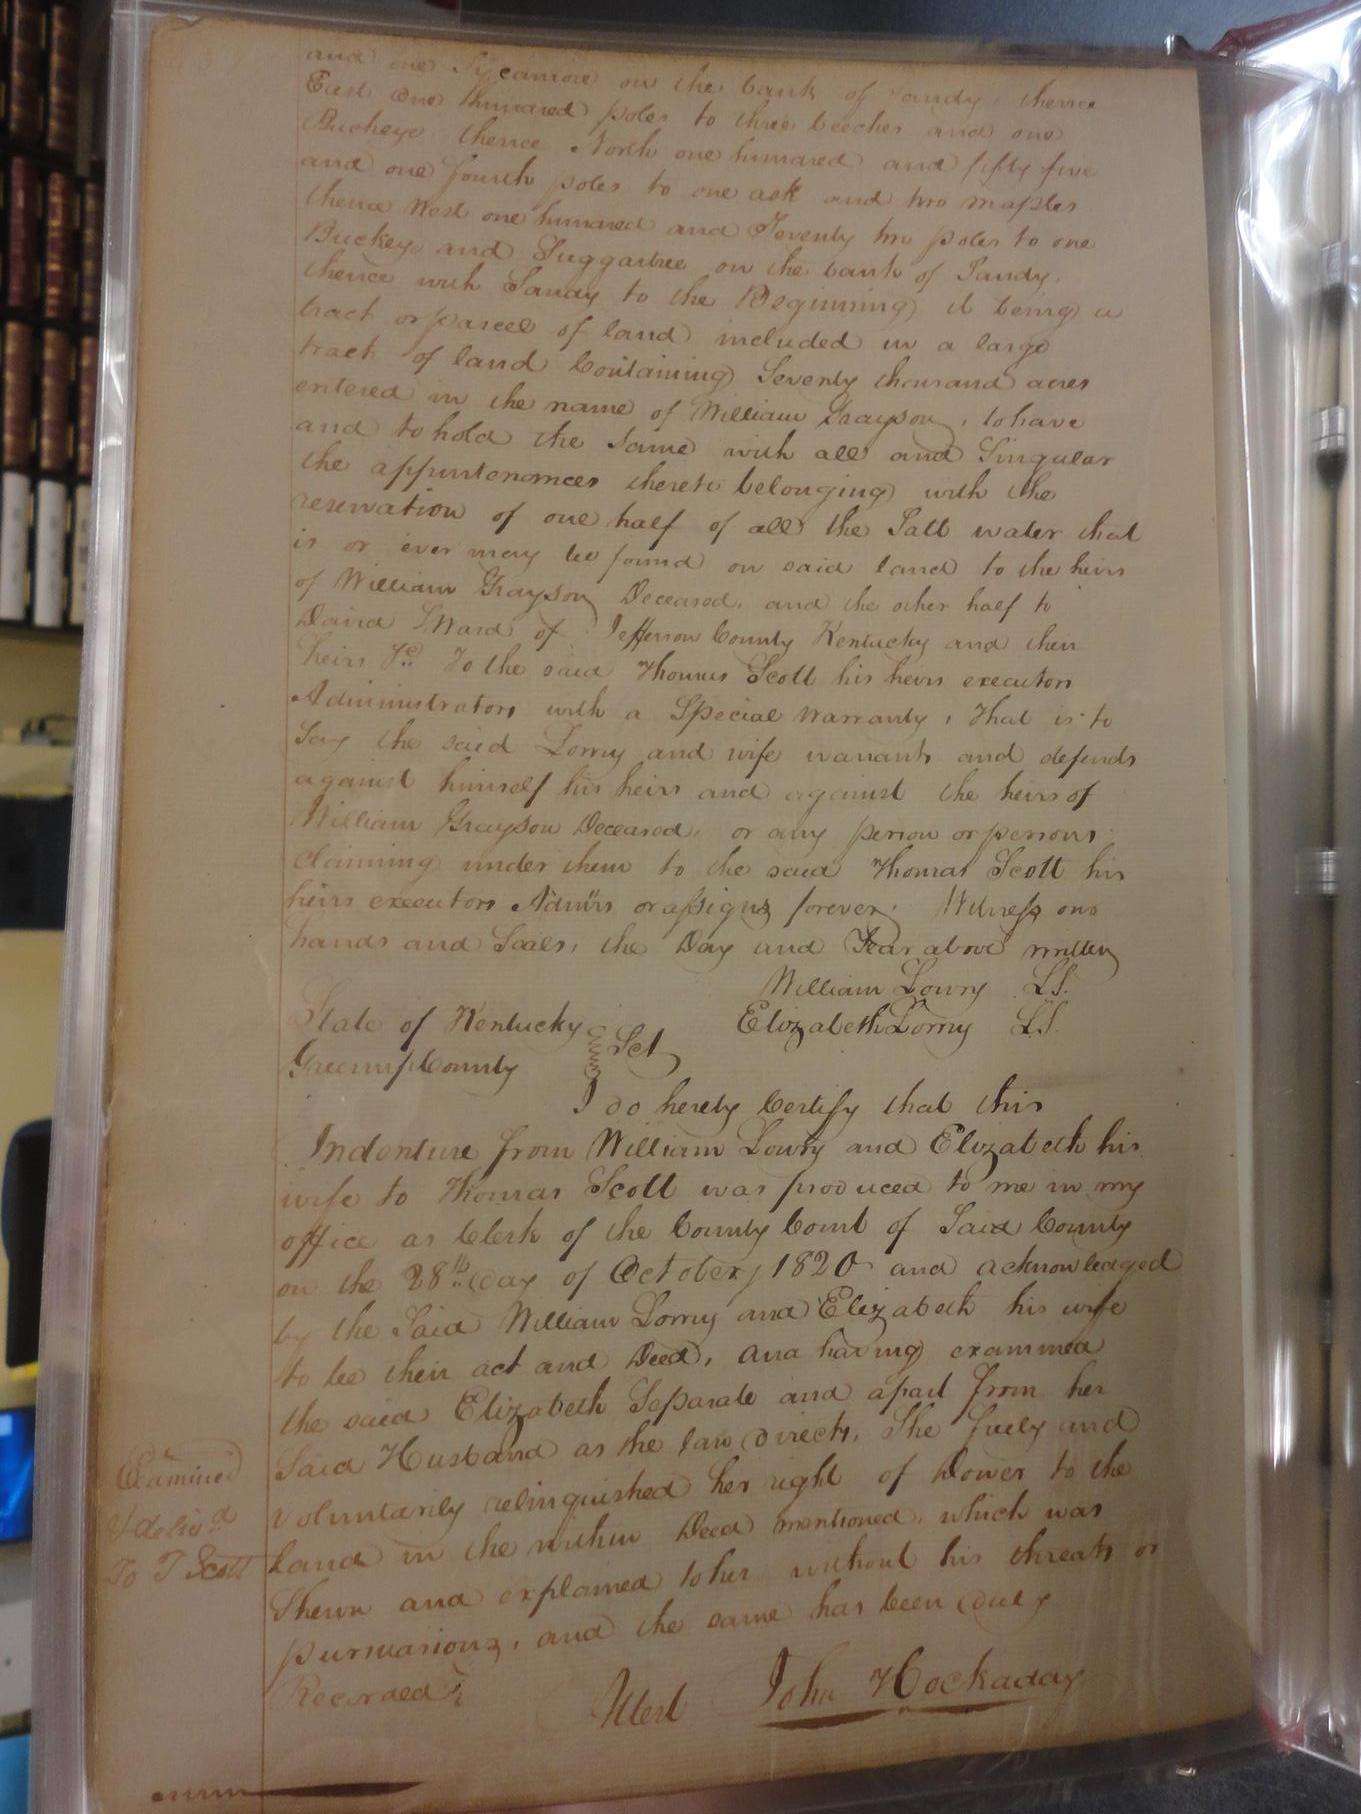 and one Sycamore on the bank of Sandy, thence
East one hundred poles to three beeches and one
Buckeye thence North one hundred and fifty five
and one fourth poles to one ash and two maples
thence West one hundred and Seventy two poles to one
Buckeye and Suggartree on the bank of Sandy,
thence with Sandy to the Beginning it being a
tract or parcel of land included in a large
tract of land Containing Seventy thousand acres
entered in the name of William Grayson, to have
and to hold the same with all and Singular
the appurtenances thereto belonging with the
reservation of one half of all the Salt water that
is or ever may be found on said land to the heirs
of William Grayson Deceased, and the other half to
David L Ward of Jefferson County Kentucky and their
heirs &c. To the said Thomas Scott his heirs executors
Administrators with a Special Warranty, that is to
Say the said Lowry and wife warrants and defends
against himself his heirs and against the heirs of
William Grayson Deceased, or any person or persons
claiming under them to the said Thomas Scott his
heirs executors Admrs or assigns forever. Witness our
hands and Seals, the Day and Year above written
William Lowry L.S.
Elizabeth Lowry L.S.
State of Kentucky
Greenup County
Sct
I do hereby Certify that this
Indenture from William Lowry and Elizabeth his
wife to Thomas Scott was produced to me in my
office as Clerk of the County Court of Said County
on the 28th day of October 1820 and acknowledged
by the Said William Lowry and Elizabeth his wife
to be their act and Deed, and having examined
the said Elizabeth Separate and apart from her
Said Husband as the law directs, She freely and
voluntarily relinquished her right of Dower to the
Land in the within Deed mentioned, which was
Shewn and explained to her without his threats or
pursuasions, and the same has been duly
Recorded
Attest John Hockaday
Examined
& deliv.d
To T Scott